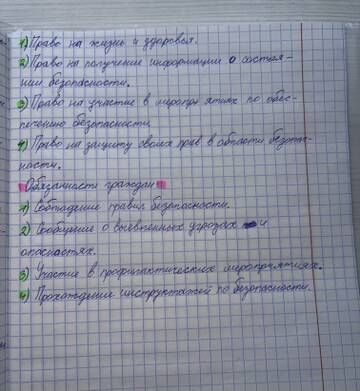 1) Право на жизнь и здоровья.
2) Право на получение информации о состоя-
нии безопасности.
3) Право на участие в меропр ятиях по обес-
печению безопасности
4) Право на защиту своих прав в области безопа-
ности.
Обязанности граждан
1) Соблюдение правил безопасности.
2) Сообщение о выявленных угрозах и
опасностях.
3) Участие в профилактических мероприятиях.
4) Прохождение инструктажей по безопасности.